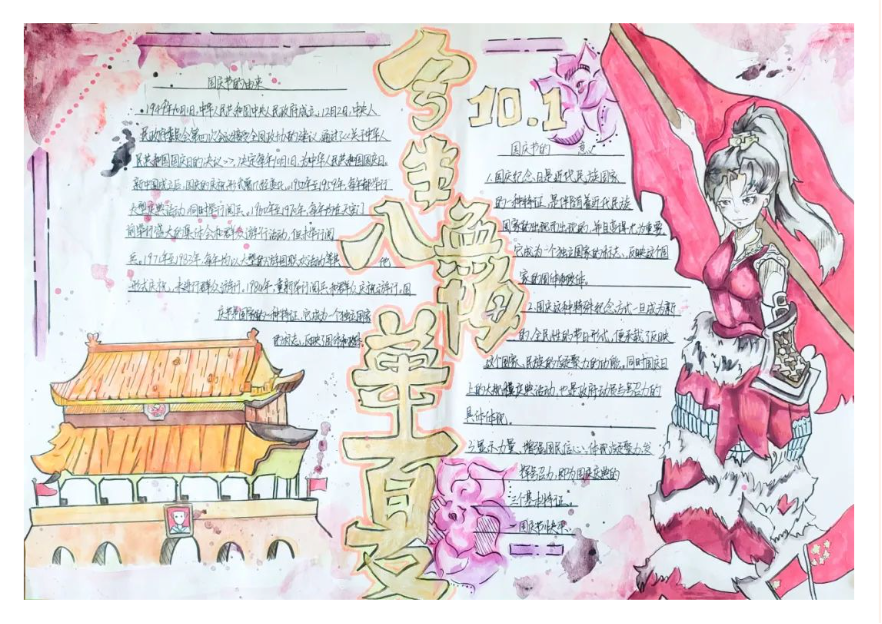 今生
入
华夏
无悔
10.1
国庆节的由来
1949年10月1日,中华人民共和国中央人民政府成立,12月2日,中央人
民政府委员会第四次会议接受全国政协的建议,通过了《关于中华人
民共和国国庆日的决议》,决定每年10月1日,为中华人民共和国国庆日,
新中国成立后,国庆的庆祝形式曾几经变化,1950年至1959年,每年都举行
大型庆典活动,同时举行阅兵,1960年至1970年,每年均在天安门
前举行盛大的集会和群众游行活动,但未举行阅
兵,1971年至1983年,每年均以大型的游园联欢活动等其他
形式庆祝,未进行群众游行,1984年,重新举行阅兵和群众庆祝游行,国
庆节是国家的一种特征,它成为一个独立国家
的标志,反映了国体和政体
国庆节的 意义
1.国庆纪念日是近代民族国家
的一种特征,是伴随着近代民族
国家的出现而出现的,并且变得尤为重要
它成为一个独立国家的标志,反映这个国
家的国体和政体.
2.国庆这种特殊纪念方式一旦成为新
的,全民性的节日形式,便承载了反映
这个国家、民族的凝聚力的功能,同时国庆日
上的大规模庆典活动,也是政府动员与号召力的
具体体现.
3.显示力量、增强国民信心、体现凝聚力,发
挥号召力,即为国庆庆典的
三个基本特征.